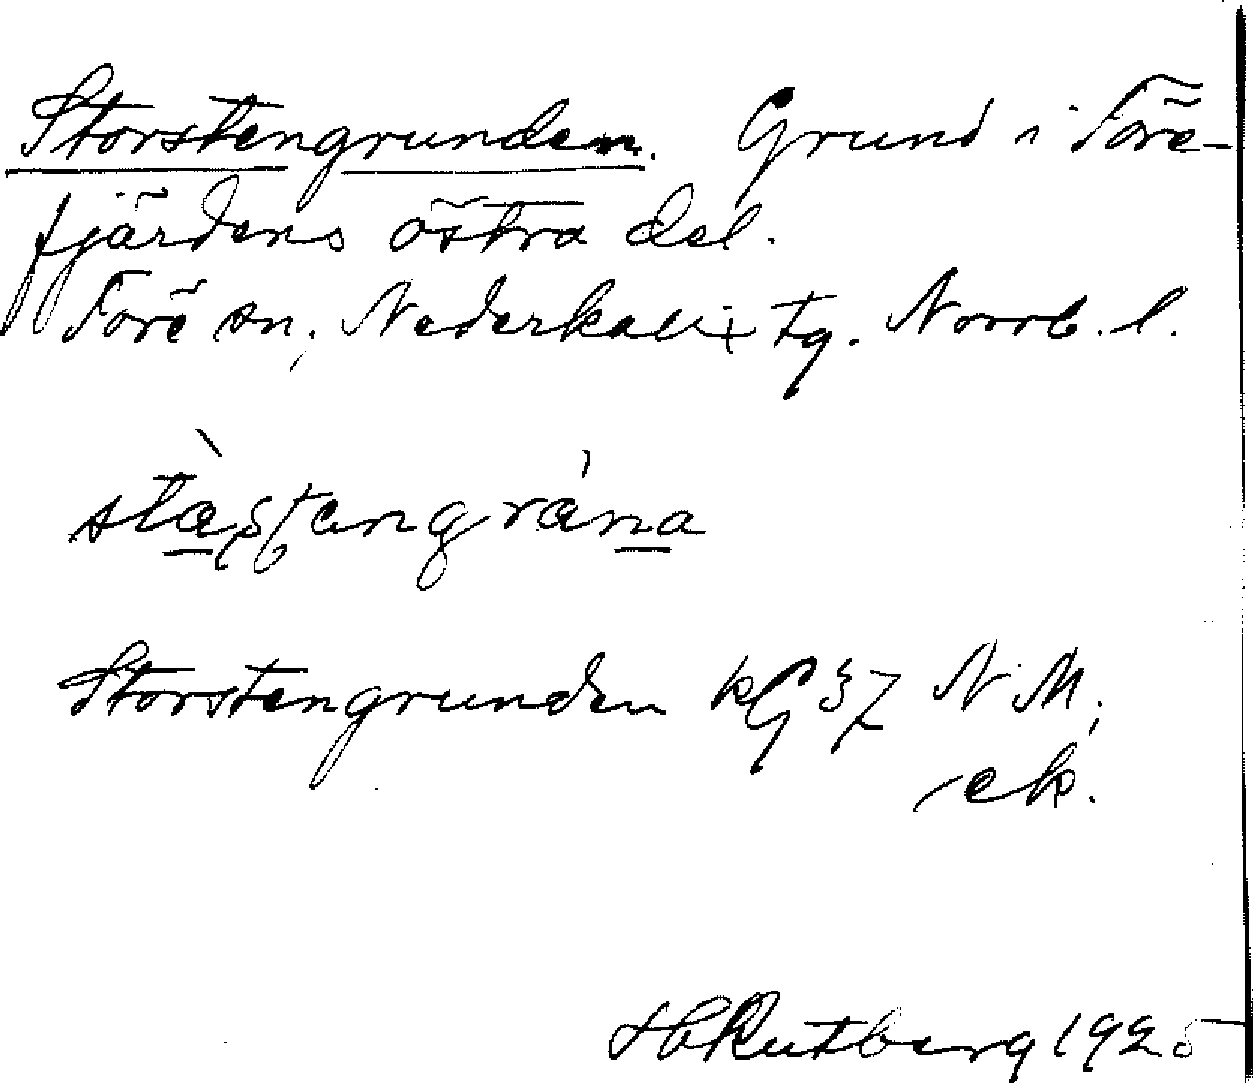 Storstengrunden. Grund i Töre-
fjärdens östra del.
Töre sn, Nederkalix tg. Norrb. l.
Storstengrunden kG 37 N M;
ek.
H Rutberg 1925